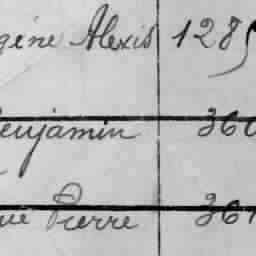 gène Alexis 1285
enjamin 360
ue Pierre 361